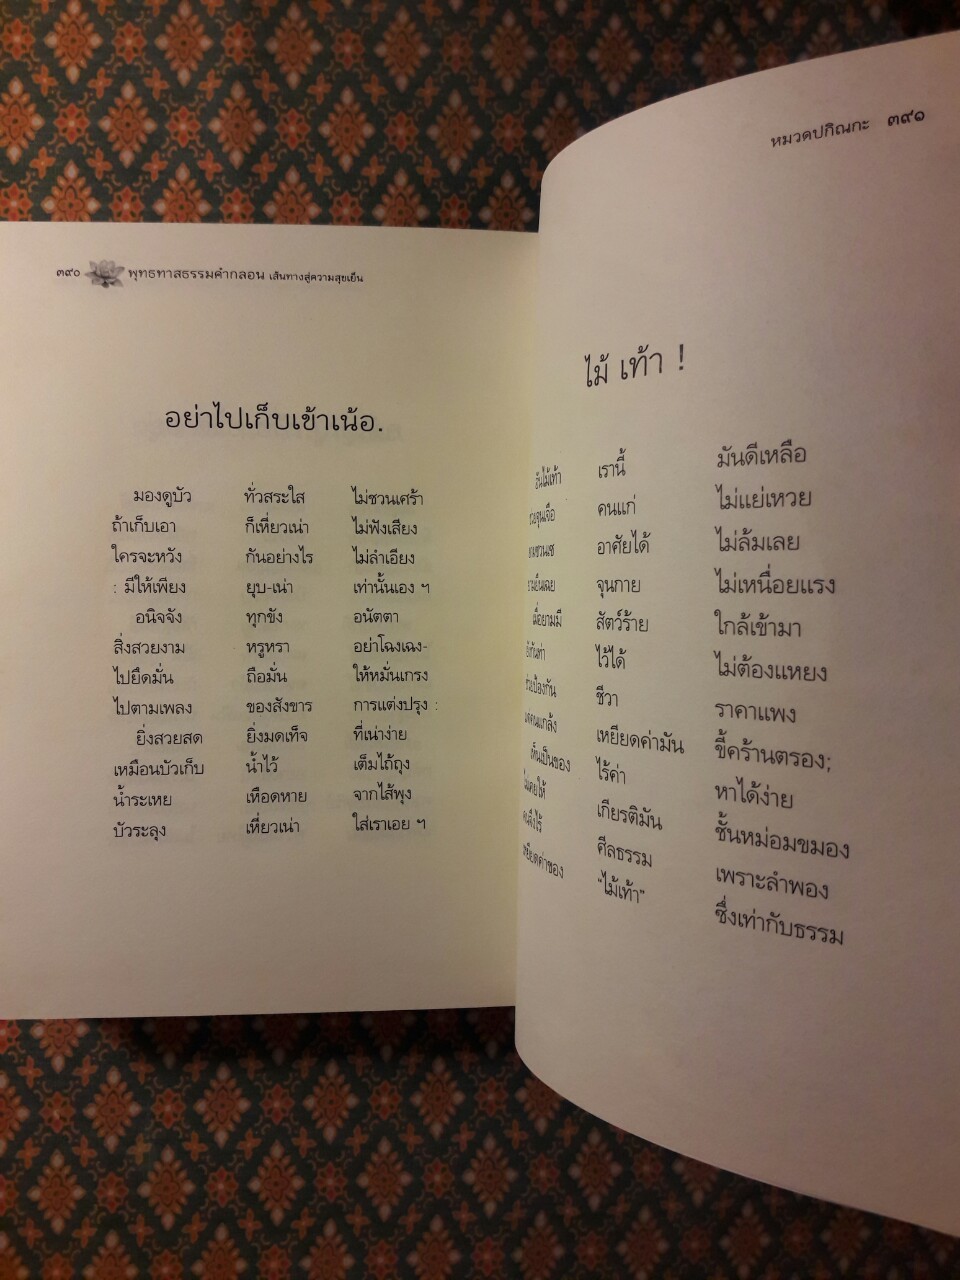 ๓๙๐ พุทธทาสธรรมคำกลอน เส้นทางสู่ความสุขเย็น
อย่าไปเก็บเข้าเน้อ.
มองดูบัว ทั่วสระใส ไม่ชวนเศร้า
ถ้าเก็บเอา ก็เหี่ยวเน่า ไม่ฟังเสียง
ใครจะหวัง กันอย่างไร ไม่ลำเอียง
: มีให้เพียง ยุบ-เน่า เท่านั้นเอง ฯ
อนิจจัง ทุกขัง อนัตตา
สิ่งสวยงาม หรูหรา อย่าโฉงเฉง-
ไปยึดมั่น ถือมั่น ให้หมั่นเกรง
ไปตามเพลง ของสังขาร การแต่งปรุง :
ยิ่งสวยสด ยิ่งมดเท็จ ที่เน่าง่าย
เหมือนบัวเก็บ น้ำไว้ เต็มไถ้ถุง
น้ำระเหย เหือดหาย จากไส้พุง
บัวระลุง เหี่ยวเน่า ใส่เราเอย ฯ
หมวดปกิณกะ ๓๙๑
ไม้ เท้า !
อันไม้เท้า เรานี้ มันดีเหลือ
คนแก่ ไม่แย่เหวย
อาศัยได้ ไม่ล้มเลย
จุนกาย ไม่เหนื่อยแรง
เมื่อยามมี สัตว์ร้าย ใกล้เข้ามา
ไว้ได้ ไม่ต้องแหยง
ช่วยป้องกัน ชีวา ราคาแพง
เหยียดค่ามัน ขี้คร้านตรอง;
เห็นเป็นของ ไร้ค่า หาได้ง่าย
ไม่เคยให้ เกียรติมัน ชั้นหม่อมขมอง
ศีลธรรม เพราะลำพอง
เหยียดค่าของ "ไม้เท้า" ซึ่งเท่ากับธรรม